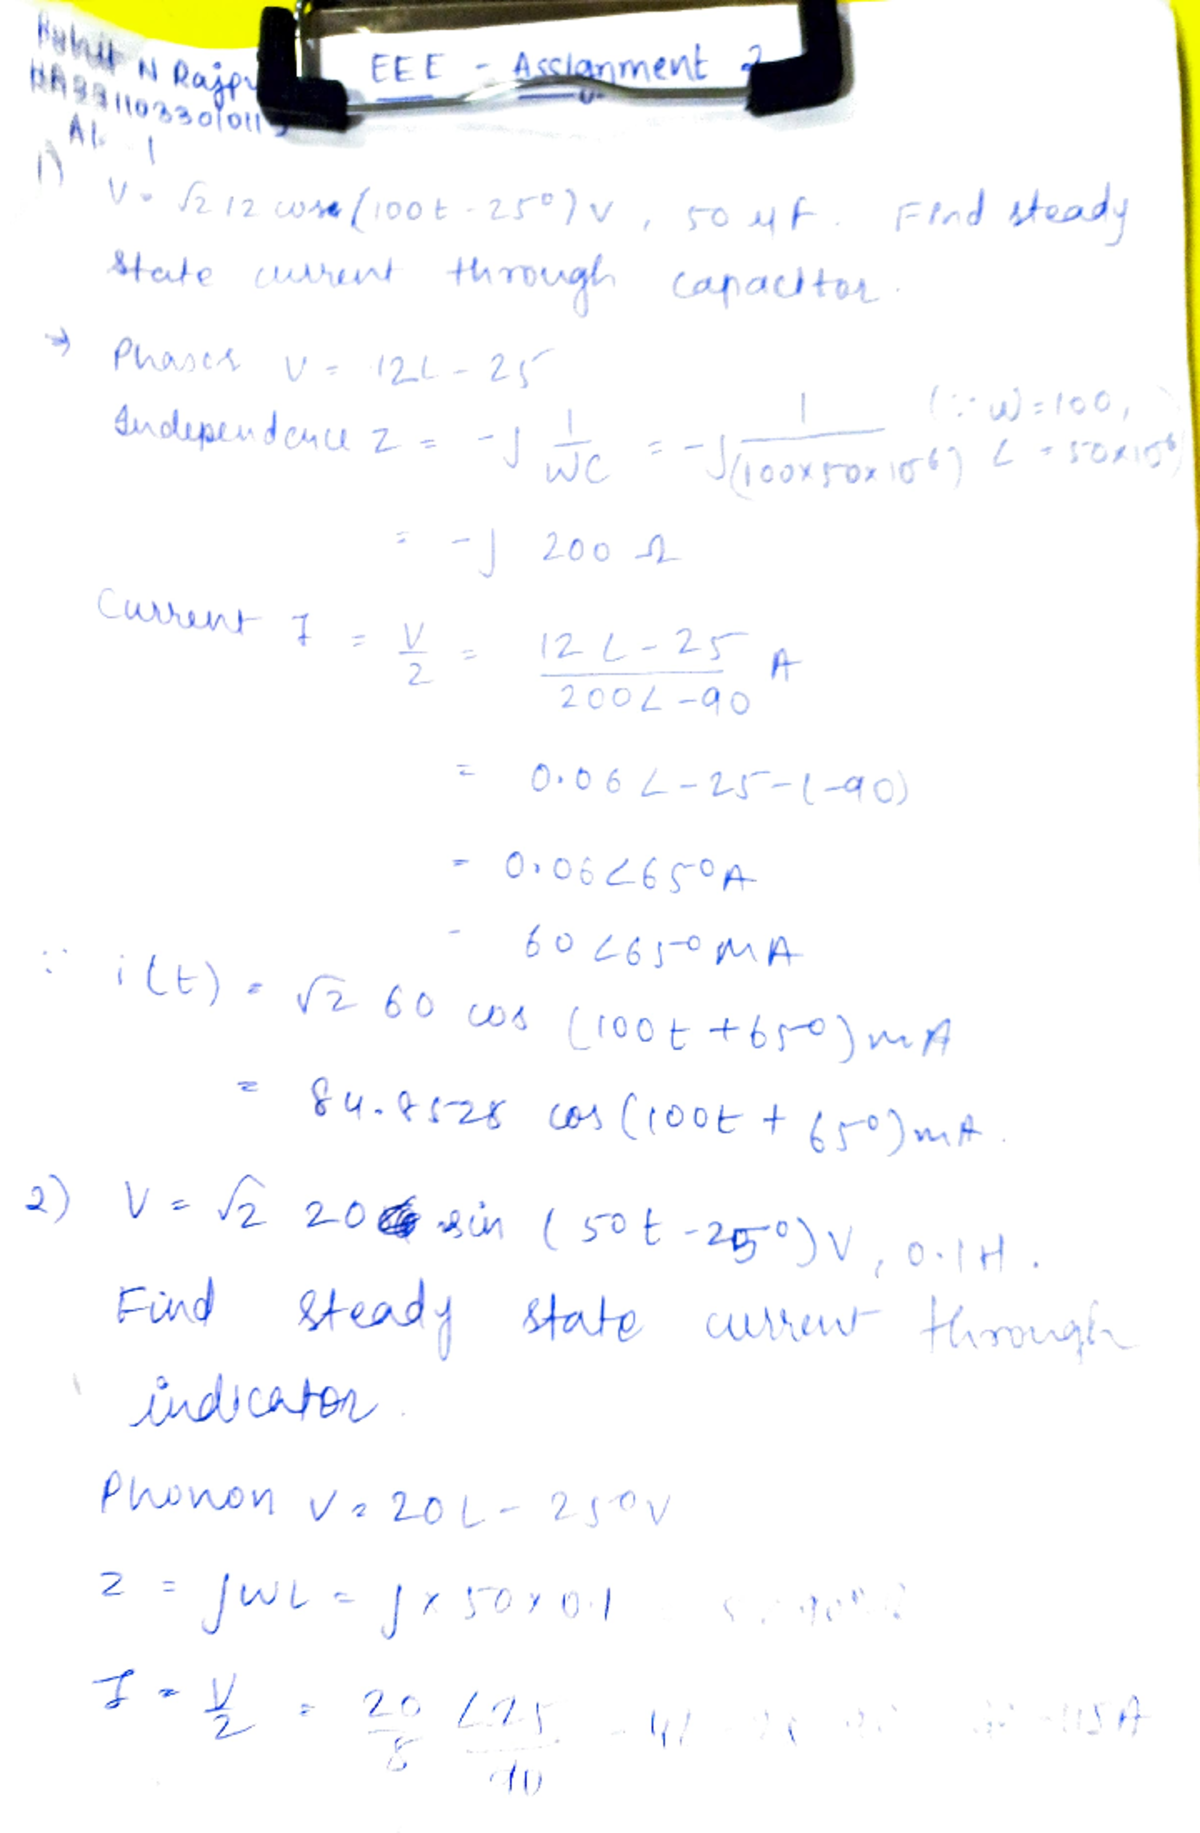 EEE - Assignment 2
N Rajpu
AI - 1
1) V = √2 12 cos (100t - 25°) V, 50 μF. Find steady
state current through capacitor.
→ Phasor V = 12∠-25
Independence Z = -j 1/WC = -j 1/(100×50×10⁻⁶) (∵ W = 100, C = 50×10⁻⁶)
= -j 200 Ω
Current I = V/Z = 12∠-25/200∠-90 A
= 0.06∠-25-(-90)
= 0.06∠65° A
= 60∠65° mA
∵ i(t) = √2 60 cos (100t + 65°) mA
= 84.8528 cos (100t + 65°) mA.
2) V = √2 20 sin (50t - 25°) V, 0.1H.
Find steady state current through
indicator.
Phonon V = 20∠-25° V
Z = jWL = j × 50 × 0.1
I = V/Z = 20/5 ∠25/90 -115A